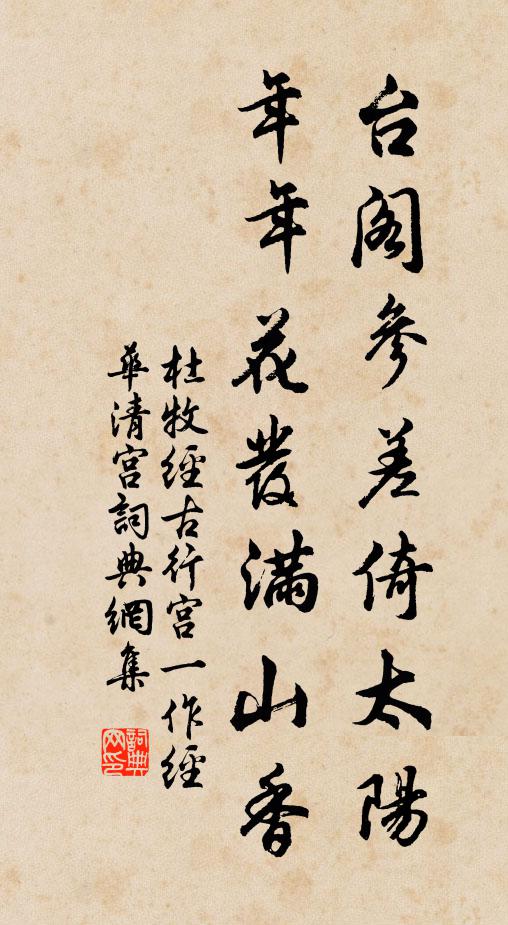 台阁參差倚太陽
年年花發滿山香
杜牧經古行宮一作經
華清宮詞典網集
詞典網印